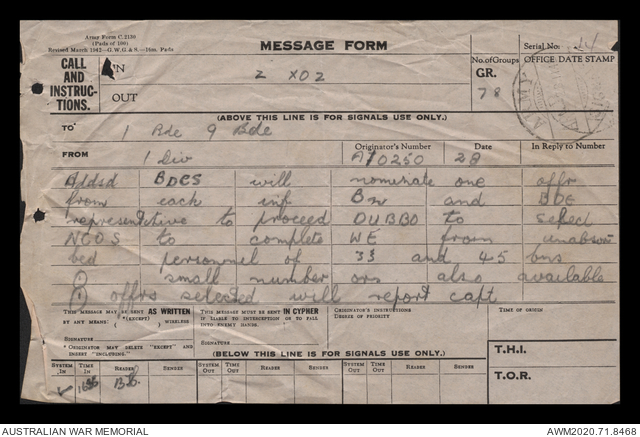 Army Form C.2130
(Pads of 100)
Revised March 1942—G.W.G & S.—
MESSAGE FORM
Serial No. 24
CALL
AND
INSTRUC-
TIONS.
IN
OUT
2 XO2
No. of Groups
GR.
78
OFFICE DATE STAMP
(ABOVE THIS LINE IS FOR SIGNALS USE ONLY.)
TO 1 Bde 9 Bde
FROM 1 Div
Originator's Number
A10250
Date
28
In Reply to Number
Addsd BDES will nominate one offr
from each inf Bn and BDE
representative to proceed DUBBO to select
NCOS to complete WE from unabsor
bed personnel of 33 and 45 bns
① small number ors also available
① offrs selected will report capt
THIS MESSAGE MAY BE SENT AS WRITTEN
BY ANY MEANS (EXCEPT) WIRELESS
SIGNATURE
* ORIGINATOR MAY DELETE "EXCEPT" AND
INSERT "INCLUDING."
THIS MESSAGE MUST BE SENT IN CYPHER
IF LIABLE TO INTERCEPTION OR TO FALL
INTO ENEMY HANDS.
SIGNATURE
ORIGINATOR'S INSTRUCTIONS
DEGREE OF PRIORITY
TIME OF ORIGIN
T.H.I.
T.O.R.
(BELOW THIS LINE IS FOR SIGNALS USE ONLY.)
SYSTEM IN TIME IN READER SENDER SYSTEM OUT TIME OUT READER SENDER SYSTEM OUT TIME OUT READER SENDER
AUSTRALIAN WAR MEMORIAL
AWM2020.71.8468